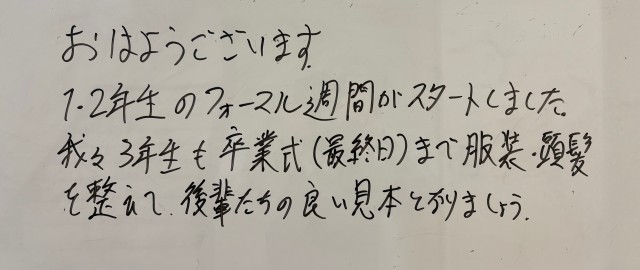 おはようございます
1・2年生のフォーマル週間がスタートしました。
我々3年生も卒業式(最終日)まで服装・頭髪
を整えて、後輩たちの良い見本となりましょう。